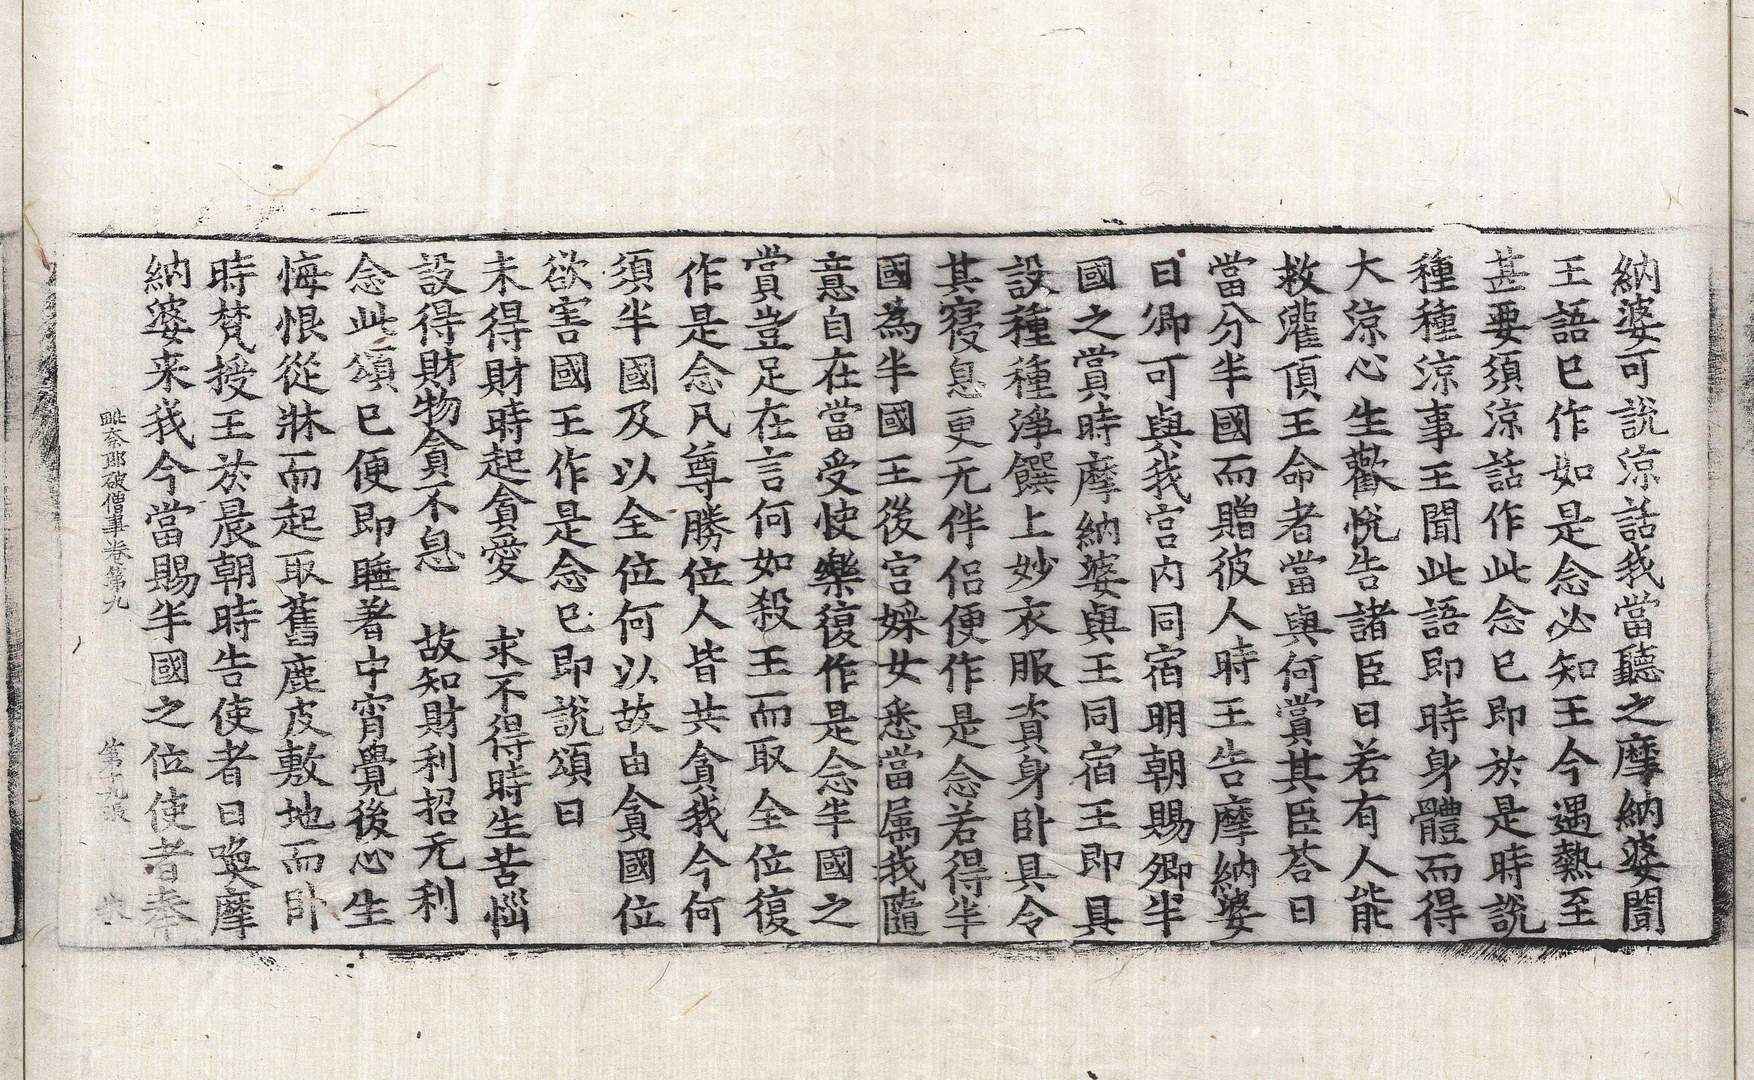 納婆可說涼話我當聽之摩納婆聞
王語已作如是念必知王今遇熱至
甚要須涼話作此念已即於是時說
種種涼事王聞此語即時身體而得
大涼心生歡悅告諸臣曰若有人能
救灌頂王命者當與何賞其臣荅曰
當分半國而贈彼人時王告摩納婆
曰卿可與我宮內同宿明朝賜卿半
國之賞時摩納婆與王同宿王即具
設種種淨饌上妙衣服資身卧具令
其寢息更无伴侶便作是念若得半
國為半國王後宮婇女悉當属我隨
意自在當受快樂復作是念半國之
賞豈足在言何如殺王而取全位復
作是念凡尊勝位人皆共貪我今何
須半國及以全位何以故由貪國位
欲害國王作是念已即說頌曰
未得財時起貪愛　求不得時生苦惱
設得財物貪不息　故知財利招无利
念此頌已便即睡著中宵覺後心生
悔恨從牀而起取舊鹿皮敷地而卧
時梵授王於晨朝時告使者曰喚摩
納婆来我今當賜半國之位使者奉
毗奈耶破僧事卷第九　第十九張